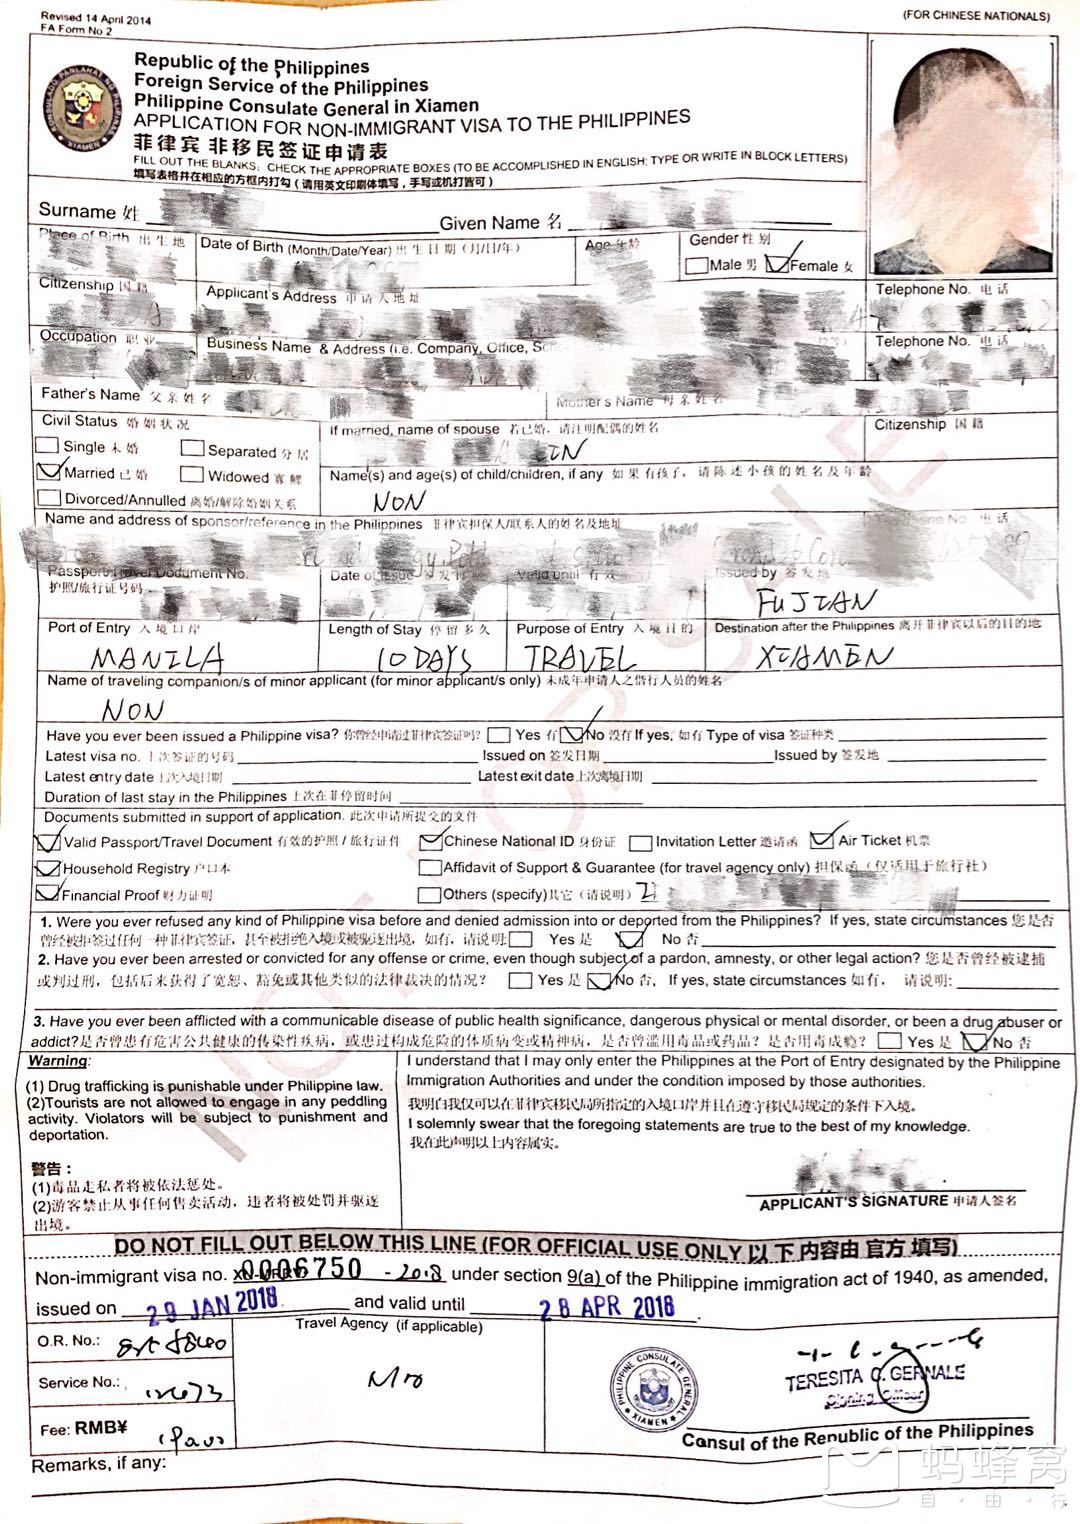 Revised 14 April 2014
FA Form No 2
(FOR CHINESE NATIONALS)
Republic of the Philippines
Foreign Service of the Philippines
Philippine Consulate General in Xiamen
APPLICATION FOR NON-IMMIGRANT VISA TO THE PHILIPPINES
菲律宾 非移民签证申请表
FILL OUT THE BLANKS; CHECK THE APPROPRIATE BOXES (TO BE ACCOMPLISHED IN ENGLISH; TYPE OR WRITE IN BLOCK LETTERS)
填写表格并在相应的方框内打勾（请用英文印刷体填写，手写或机打皆可）
Surname 姓
Given Name 名
Place of Birth 出生地
Date of Birth (Month/Date/Year) 出生日期（月/日/年）
Age 年龄
Gender 性别
Male 男 Female 女
Citizenship 国籍
Applicant's Address 申请人地址
Telephone No. 电话
Occupation 职业
Business Name & Address (i.e. Company, Office,
Telephone No. 电话
Father's Name 父亲姓名
Mother's Name 母亲姓名
Civil Status 婚姻状况
Single 未婚 Separated 分居
Married 已婚 Widowed 寡鳏
Divorced/Annulled 离婚/解除婚姻关系
If married, name of spouse 若已婚，请注明配偶的姓名
Citizenship 国籍
Name(s) and age(s) of child/children, if any 如果有孩子，请陈述小孩的姓名及年龄
NON
Name and address of sponsor/reference in the Philippines 菲律宾担保人/联系人的姓名及地址
电话
Passport/Travel Document No.
护照/旅行证号码
Date of Issue
Valid until 有效
Issued by 签发地
FUJIAN
Port of Entry 入境口岸
Length of Stay 停留多久
Purpose of Entry 入境目的
Destination after the Philippines 离开菲律宾以后的目的地
MANILA
10 DAYS
TRAVEL
XIAMEN
Name of traveling companion/s of minor applicant (for minor applicant/s only) 未成年申请人之偕行人员的姓名
NON
Have you ever been issued a Philippine visa? 你曾经申请过菲律宾签证吗? Yes 有 No 没有 If yes, 如有 Type of visa 签证种类
Latest visa no. 上次签证的号码 Issued on 签发日期 Issued by 签发地
Latest entry date 上次入境日期 Latest exit date 上次离境日期
Duration of last stay in the Philippines 上次在菲停留时间
Documents submitted in support of application. 此次申请所提交的文件
Valid Passport/Travel Document 有效的护照 / 旅行证件 Chinese National ID 身份证 Invitation Letter 邀请函 Air Ticket 机票
Household Registry 户口本 Affidavit of Support & Guarantee (for travel agency only) 担保函（仅适用于旅行社）
Financial Proof 财力证明 Others (specify)其它（请说明）
1. Were you ever refused any kind of Philippine visa before and denied admission into or deported from the Philippines? If yes, state circumstances 您是否
曾经被拒签过任何一种菲律宾签证，甚至被拒绝入境或被驱逐出境，如有，请说明: Yes 是 No 否
2. Have you ever been arrested or convicted for any offense or crime, even though subject of a pardon, amnesty, or other legal action? 您是否曾经被逮捕
或判过刑，包括后来获得了宽恕、豁免或其他类似的法律裁决的情况？ Yes 是 No 否, If yes, state circumstances 如有， 请说明:
3. Have you ever been afflicted with a communicable disease of public health significance, dangerous physical or mental disorder, or been a drug abuser or
addict?是否曾患有危害公共健康的传染性疾病，或患过构成危险的体质病变或精神病，是否曾滥用毒品或药品？是否用毒成瘾？ Yes 是 No 否
Warning:
(1) Drug trafficking is punishable under Philippine law.
(2)Tourists are not allowed to engage in any peddling
activity. Violators will be subject to punishment and
deportation.
警告：
(1)毒品走私者将被依法惩处。
(2)游客禁止从事任何售卖活动，违者将被处罚并驱逐
出境。
I understand that I may only enter the Philippines at the Port of Entry designated by the Philippine
Immigration Authorities and under the condition imposed by those authorities.
我明白我仅可以在菲律宾移民局所指定的入境口岸并且在遵守移民局规定的条件下入境。
I solemnly swear that the foregoing statements are true to the best of my knowledge.
我在此声明以上内容属实。
APPLICANT'S SIGNATURE 申请人签名
NOT FOR SALE
DO NOT FILL OUT BELOW THIS LINE (FOR OFFICIAL USE ONLY 以下内容由官方填写)
Non-immigrant visa no. 0006750 - 2018 under section 9(a) of the Philippine immigration act of 1940, as amended,
issued on 29 JAN 2018 and valid until 28 APR 2018.
O.R. No.:
Service No.:
Fee: RMB¥
Travel Agency (if applicable)
PHILIPPINE CONSULATE GENERAL XIAMEN
TERESITA C. GERNALE
Signing Officer
Consul of the Republic of the Philippines
Remarks, if any:
蚂蜂窝
自·由·行